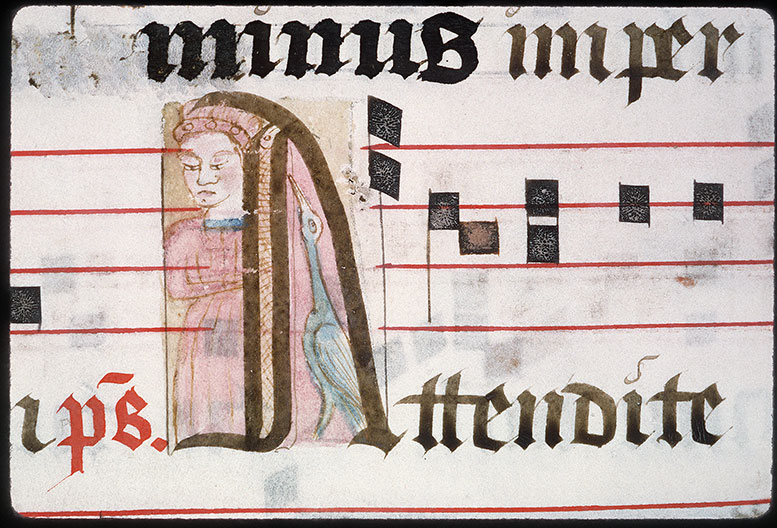 minus imper
n ps̄. Attendite